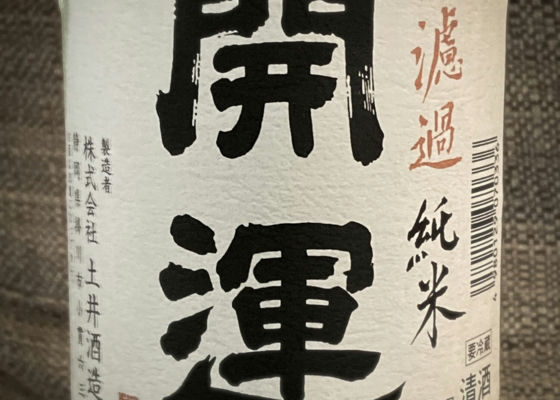 開運
濾過
純米
4980129070336
要冷蔵
清酒
製造者
株式会社 土井酒造
静岡県掛川市小貫六三